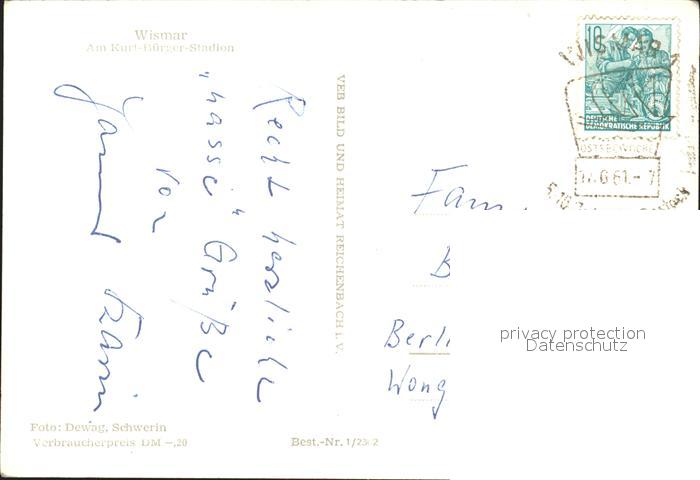 Wismar
Am Kurt-Bürger-Stadion
Recht herzliche
"nasse" Grüße
von
VEB BILD UND HEIMAT REICHENBACH i. V.
10
DEUTSCHE
DEMOKRATISCHE REPUBLIK
WISMAR 1
OSTSEEWOCHE
Fam.
B
Berli
Wong
privacy protection
Datenschutz
Foto: Dewag, Schwerin
Verbraucherpreis DM -,20
Best.-Nr. 1/23